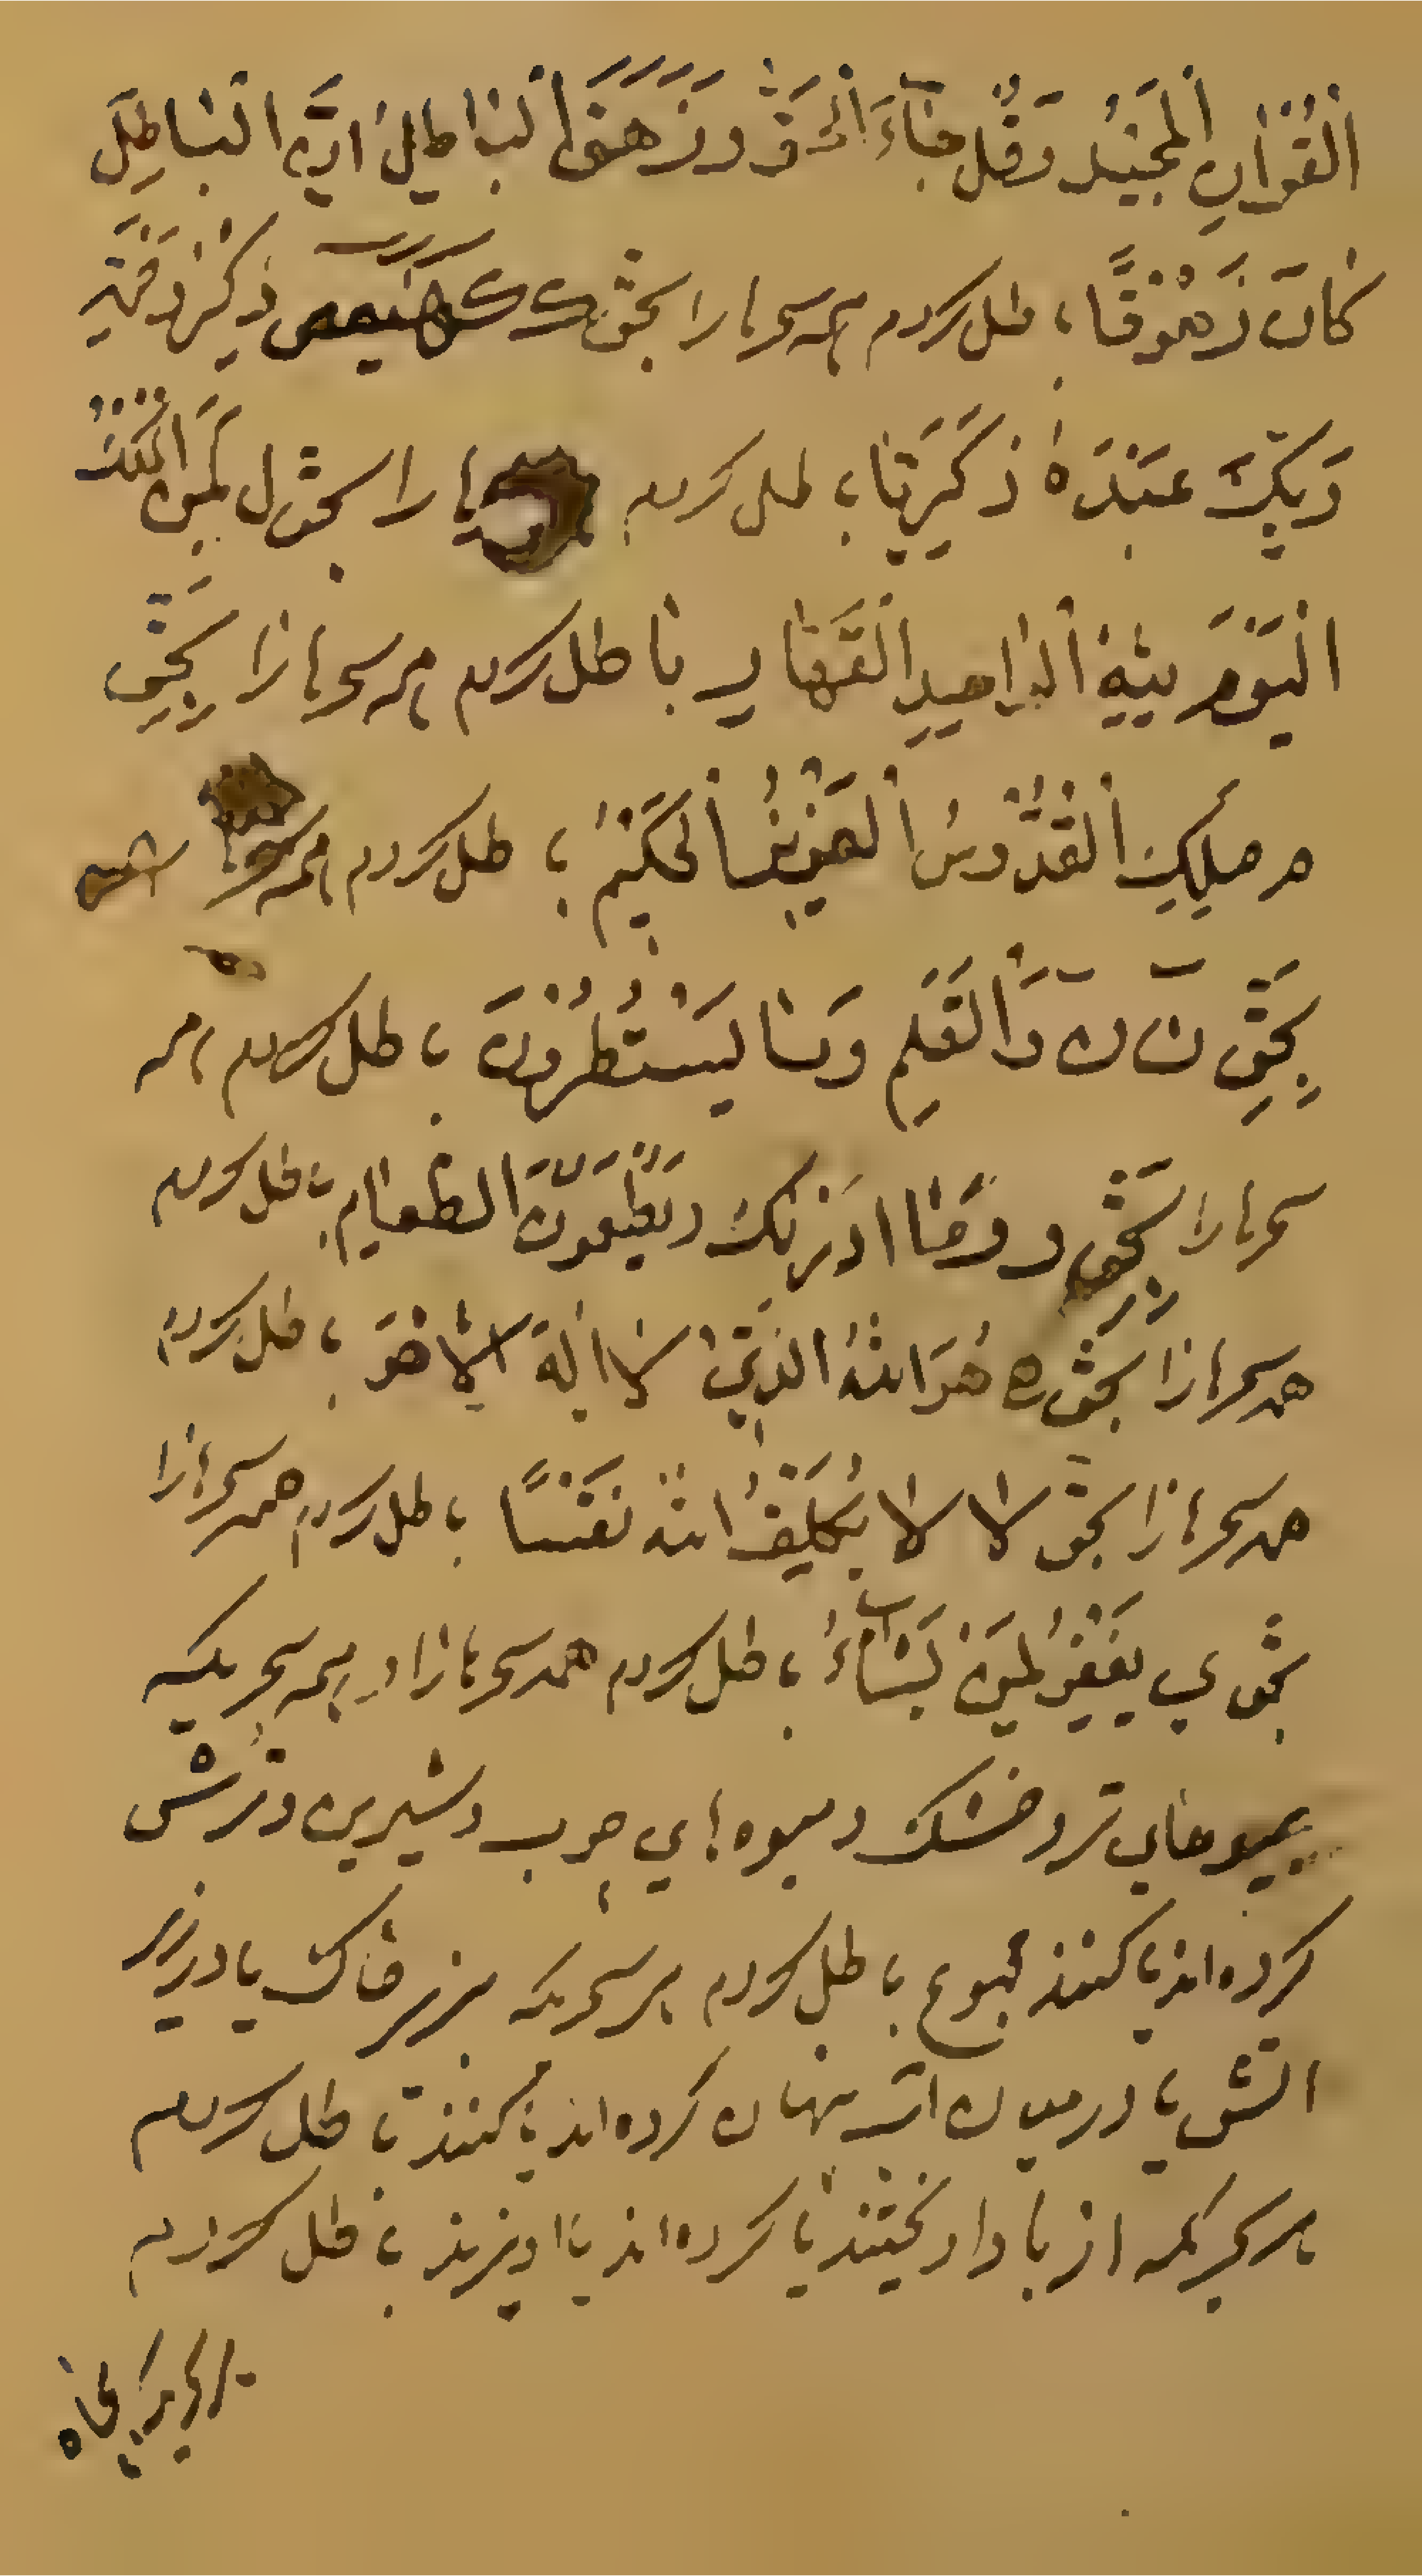 اَلْقُرْاٰنِ الْمَجِيْدِ وَقُلْ جَآءَ الْحَقُّ وَزَهَقَ الْبَاطِلُ اِنَّ الْبَاطِلَ
كَانَ زَهُوْقًا باطل کردم همه سحرها را بحق ك كهيعص ذِكْرُ رَحْمَتِ
رَبِّكَ عَبْدَهٗ زَكَرِيَّا باطل کردم ها را بحق ل لِمَنِ الْمُلْكُ
الْيَوْمَ لِلّٰهِ الْوَاحِدِ الْقَهَّارِ باطل کردم همه سحرها را بِحَقِّ
م مَلِكِ الْقُدُّوْسُ الْعَزِيْزُ الْحَكِيْمُ باطل کردم همه سحرها
بِحَقِّ نٓ ن وَالْقَلَمِ وَمَا يَسْطُرُوْنَ باطل کردم همه
سحرها را بحق و وَمَا اَدْرٰىكَ وَيُطْعِمُوْنَ الطَّعَامَ باطل کردم
همه سحرها را بحق ه هُوَ اللّٰهُ الَّذِيْ لَا اِلٰهَ اِلَّا هُوَ باطل کردم
همه سحرها را بحق لا لا يُكَلِّفُ اللّٰهُ نَفْسًا باطل کردم همه سحرها را
بحق ي يَغْفِرُ لِمَنْ يَّشَآءُ باطل کردم همه سحرها را و همه سحریکه
بمیوهای تر و خشک و میوه های چرب و شیرین و ترش
کرده اند یا کنند باطل کردم هر سحریکه بزیر خاک یا در زیر
اتش یا در میان اتش پنهان کرده اند یا کنند باطل کردم
هر سحریکه از باد اویختند یا کرده اند یا اویزند باطل کردم